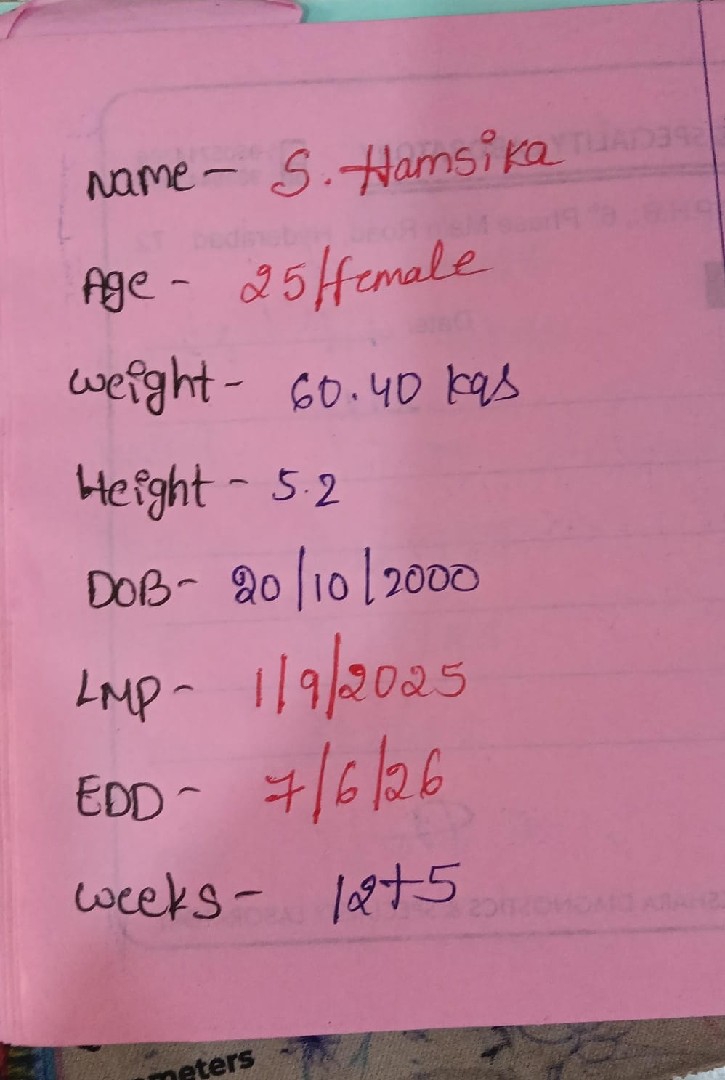 Name - S. Hamsika
Age - 25/female
weight - 60.40 kgs
Height - 5.2
DOB - 20/10/2000
LMP - 1/9/2025
EDD - 7/6/26
weeks - 12+5
meters